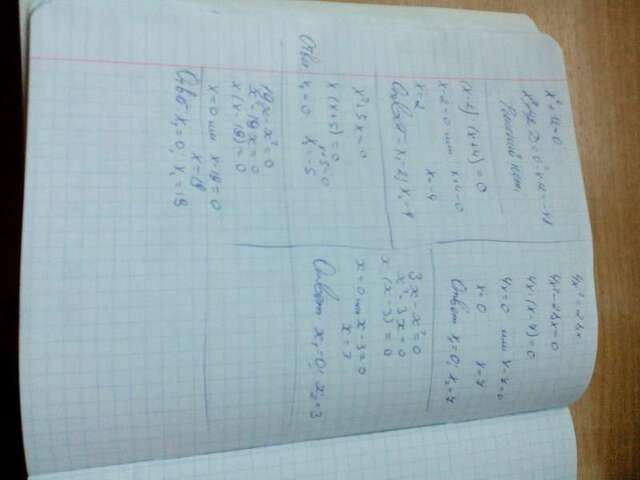 x² + 12 = 0
Решений нет.
(x-2)(x+4) = 0
x-2=0 или x+4=0
x=2 x=-4
Ответ x₁=2; x₂-4
x² + 5x = 0
x(x+5) = 0
x+5=0
x₁=0 x₂=-5
18x-x²=0
x²-18x=0
x(x-18)=0
x=0 или x-18=0
x=18
Ответ x₁=0; x₂=18
4x² = 28x
4x²-28x=0
4x(x-7)=0
4x=0 или x-7=0
x=0 x=7
Ответ x₁=0; x₂=7
3x-x²=0
x²-3x=0
x(x-3)=0
x=0 или x-3=0
x=3
Ответ x₁=0; x₂=3